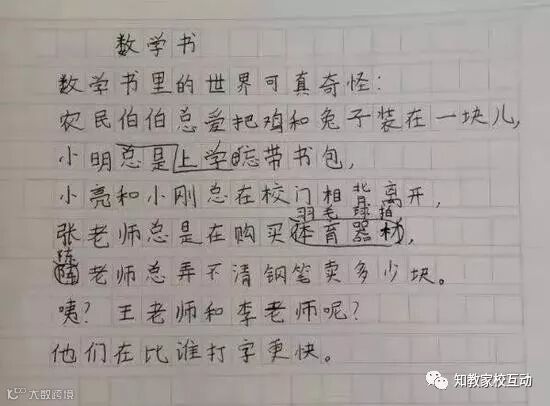 数学书
数学书里的世界可真奇怪：
农民伯伯总爱把鸡和兔子装在一块儿，
小明总是上学忘带书包，
小亮和小刚总在校门相背离开，
羽毛球拍
张老师总是在购买体育器材，
陈
老师总弄不清钢笔卖多少块。
咦？王老师和李老师呢？
他们在比谁打字更快。
大数跨境
知教家校互动